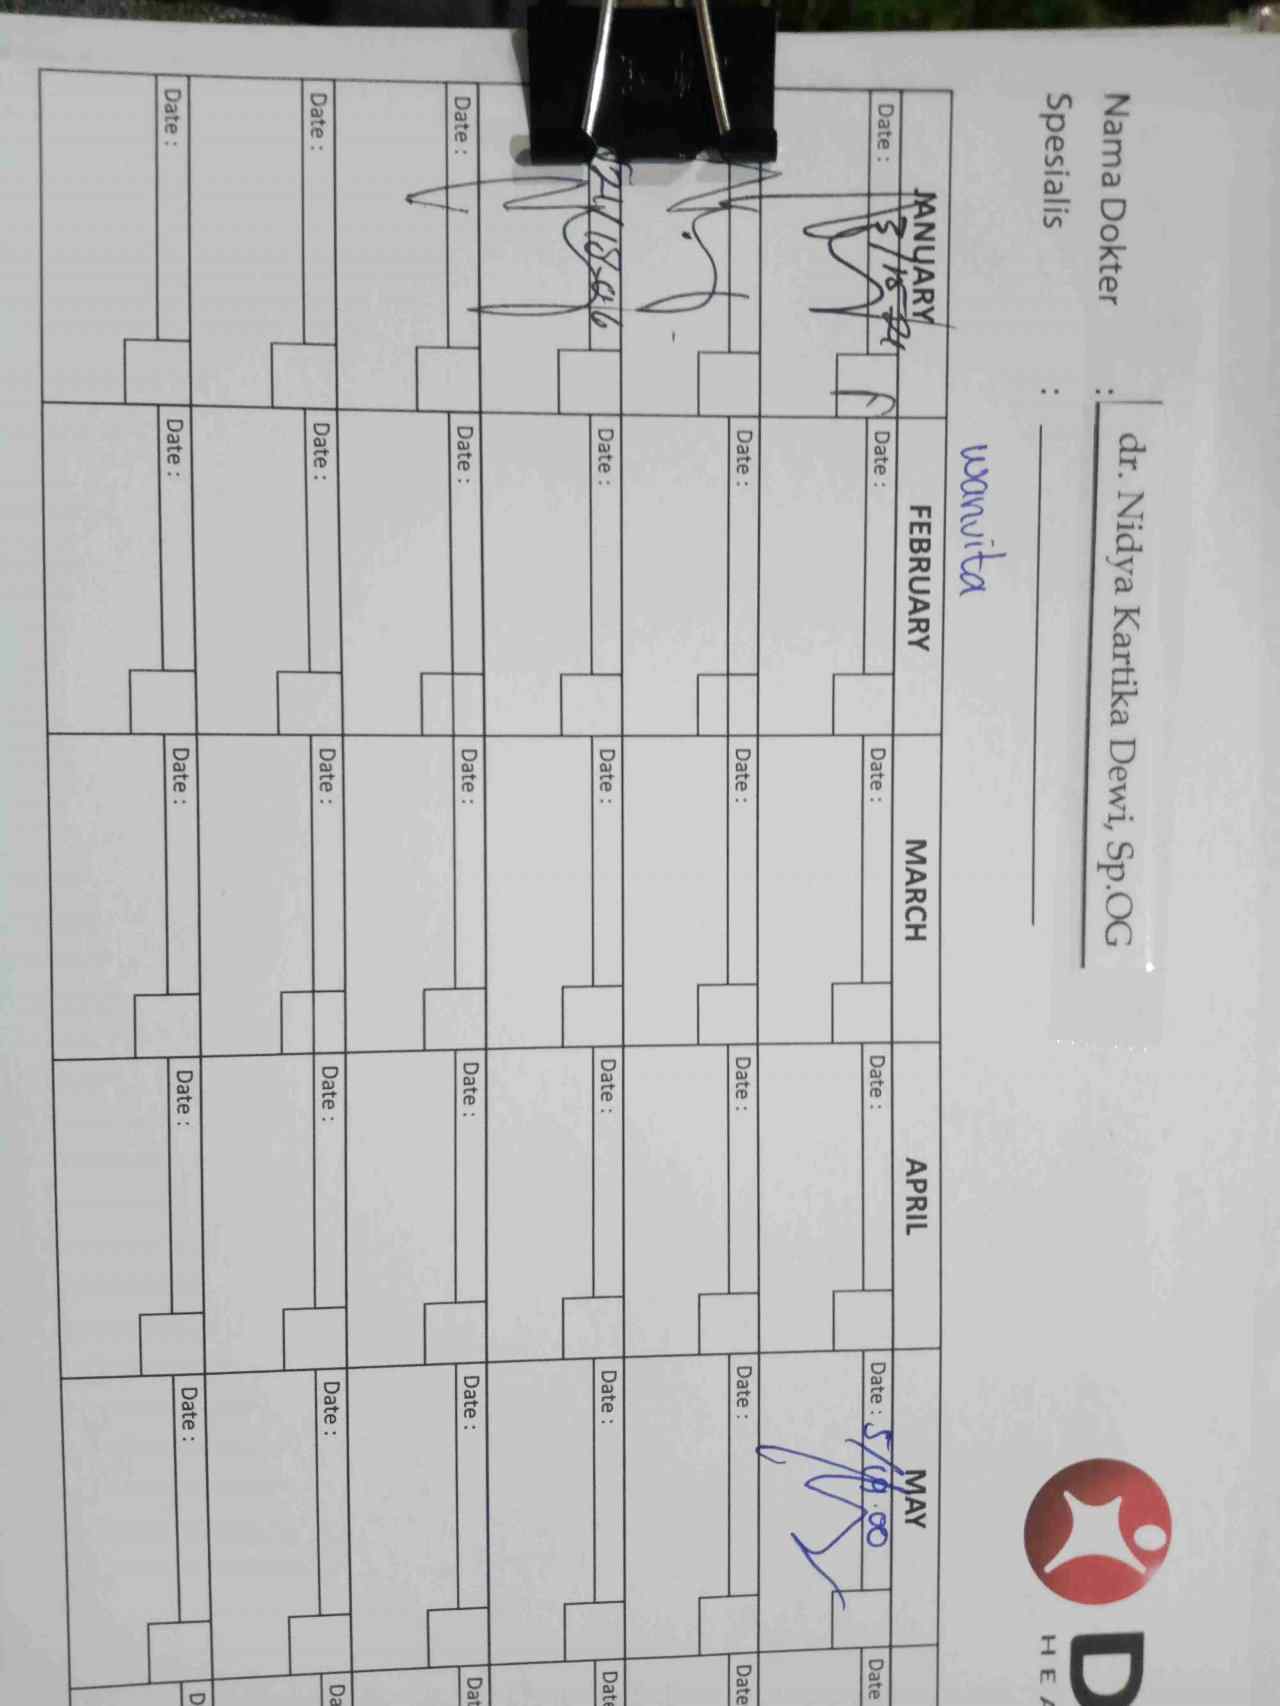 Nama Dokter : dr. Nidya Kartika Dewi, Sp.OG
Spesialis :
D
HEA
wanvita
JANUARY FEBRUARY MARCH APRIL MAY
Date : Date : Date : Date : Date : 5/19.00 Date
Date : Date : Date : Date : Date
Date : Date : Date : Date : Date
Date : Date : Date : Date : Date : Dat
Date : Date : Date : Date : Date : Da
Date : Date : Date : Date : Date : D